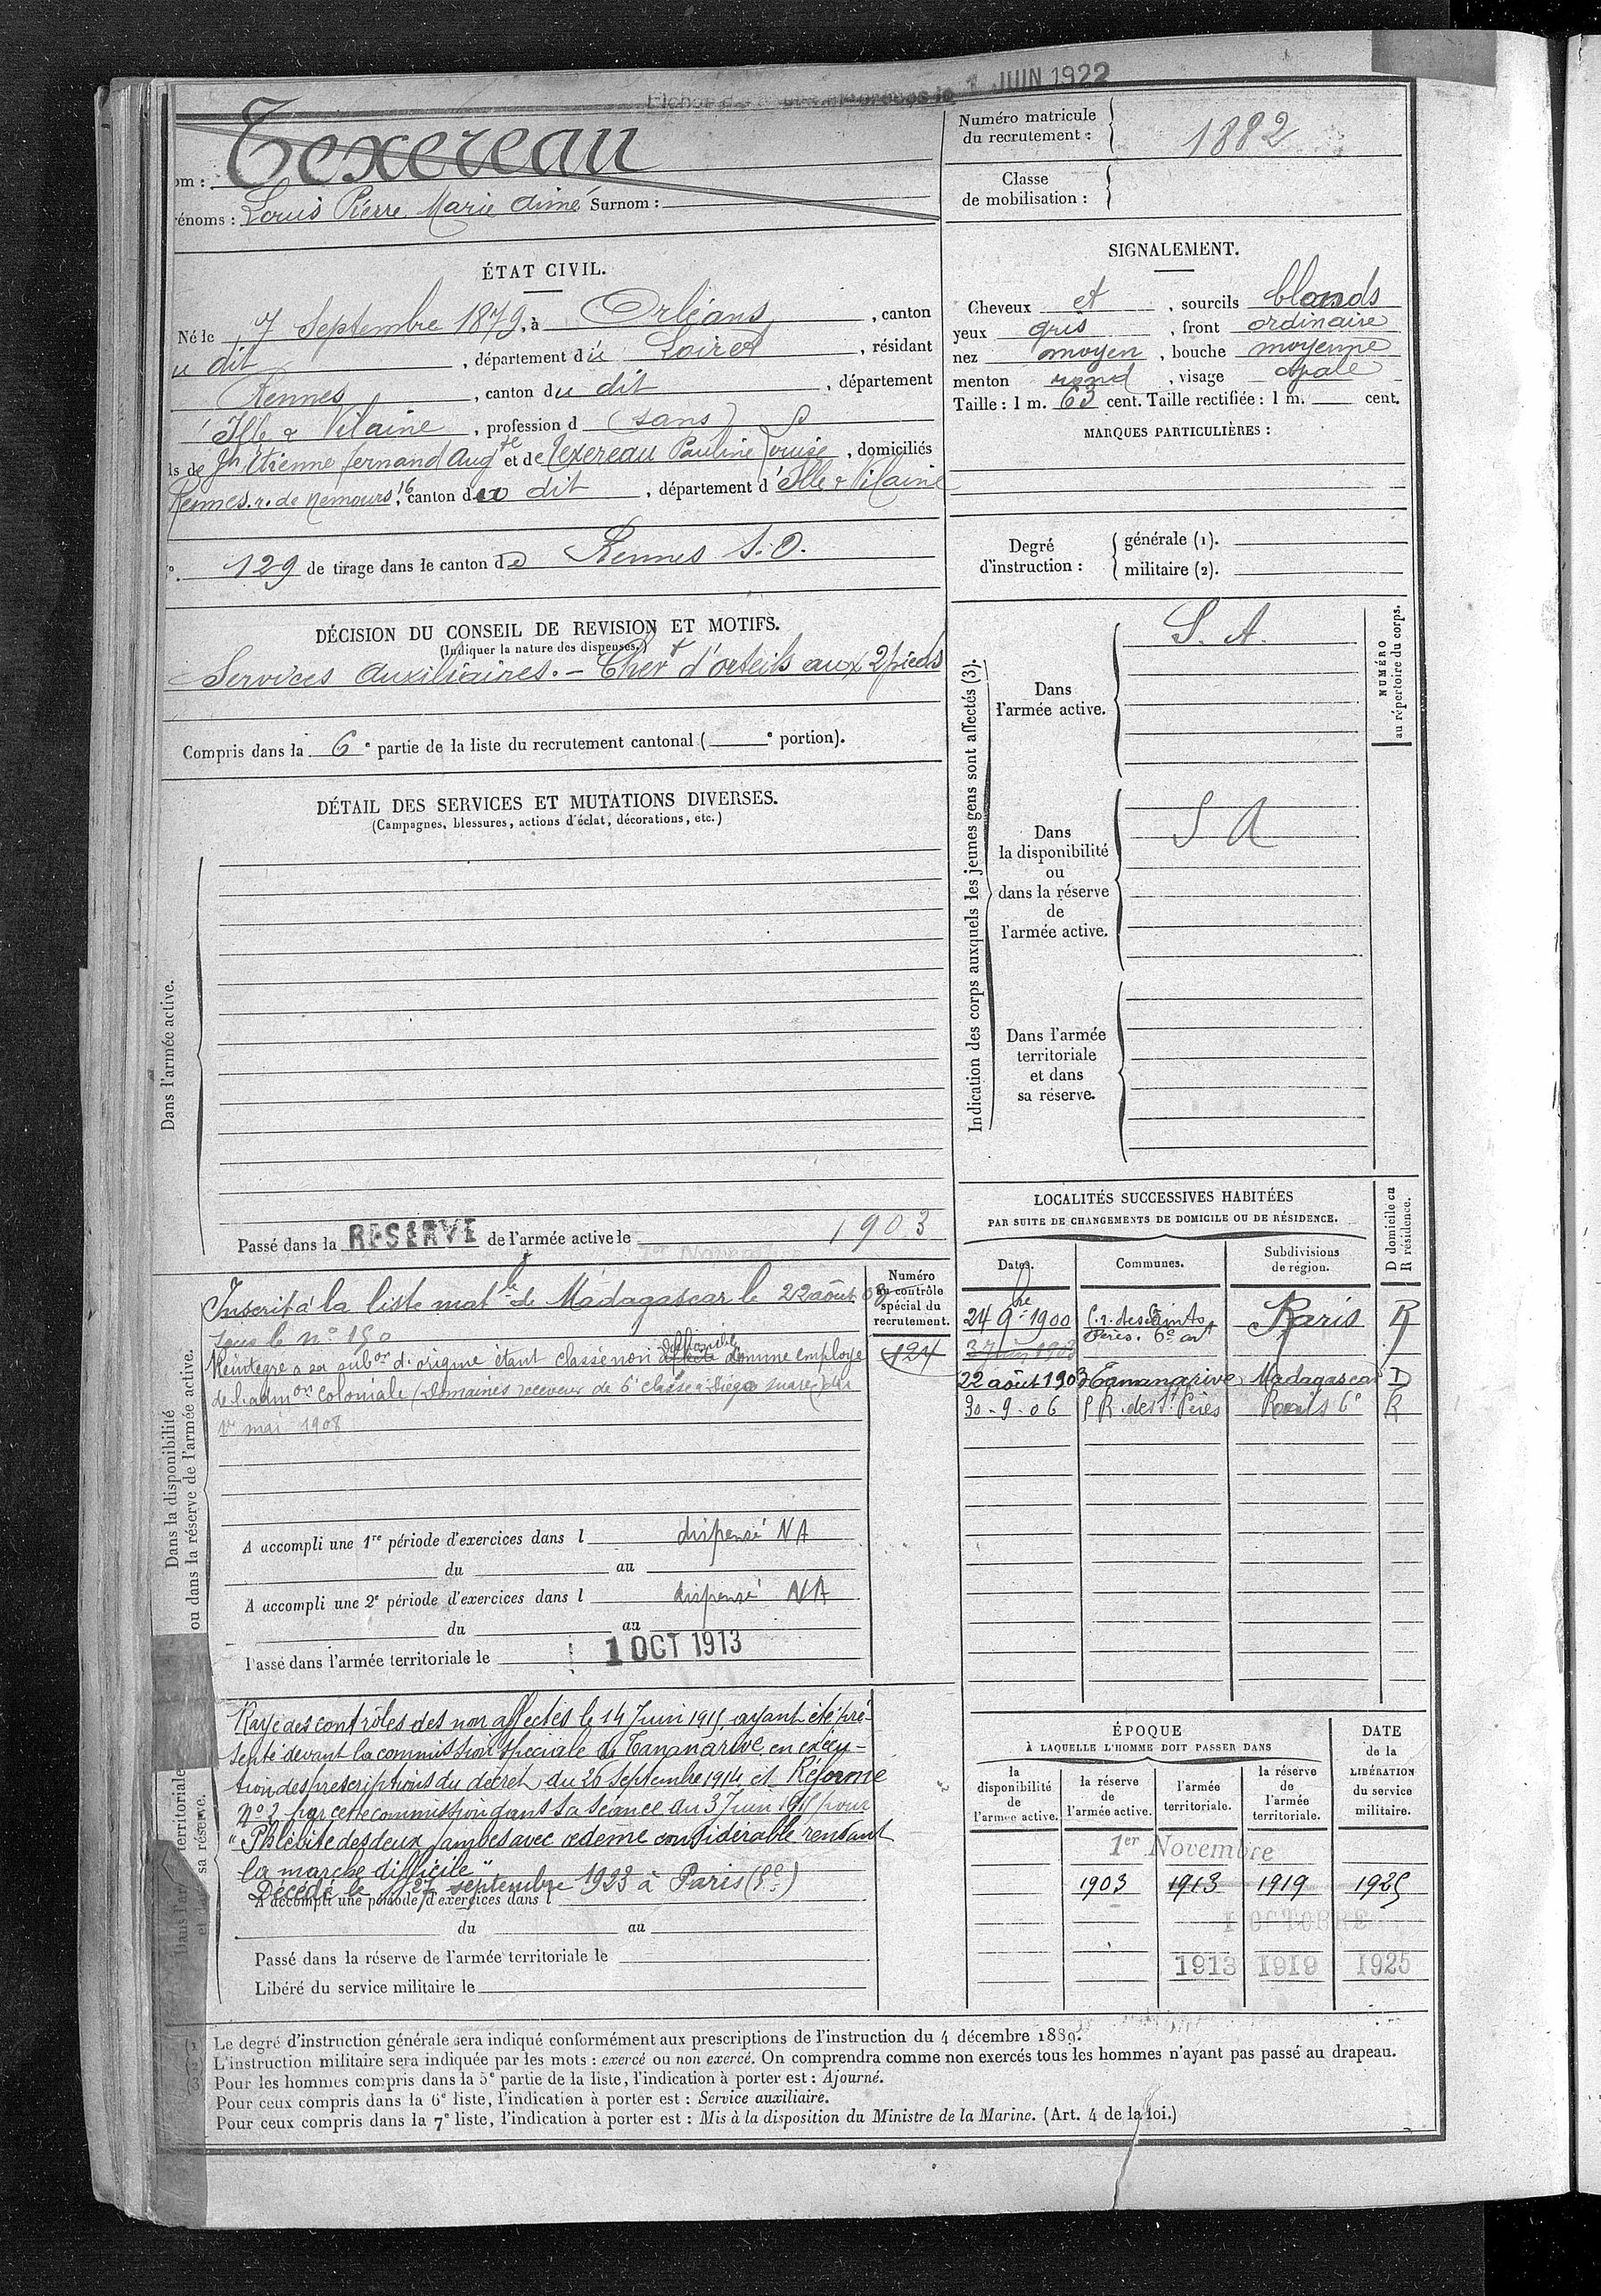 1 JUIN 1922
om : Texereau
énoms : Louis Pierre Marie Aimé Surnom :
ÉTAT CIVIL.
Né le 7 Septembre 1879, à Orléans, canton
u dit, département du Loiret, résidant
Rennes, canton du dit, département
Ille & Vilaine, profession d (sans)
ls de Jn Etienne fernand Augte et de Texereau Pauline Louise, domiciliés
Rennes. r. de Nemours, 16 canton du dit, département d'Ille & Vilaine
129 de tirage dans le canton de Rennes S.O.
DÉCISION DU CONSEIL DE REVISION ET MOTIFS.
(Indiquer la nature des dispenses.)
Services Auxiliaires. - Chevt d'orteils aux 2 pieds
Compris dans la 6e partie de la liste du recrutement cantonal ( e portion).
DÉTAIL DES SERVICES ET MUTATIONS DIVERSES.
(Campagnes, blessures, actions d'éclat, décorations, etc.)
Dans l'armée active.
Passé dans la RESERVE de l'armée active le 1er Novembre 1903
Dans la disponibilité
ou dans la réserve de l'armée active.
Inscrit à la liste matle de Madagascar le 22 août 03
sous le n° 150
Réintégré à sa subon d'origine étant classé non disponible comme employé
de l'admon coloniale (Domaines receveur de 6e classe à Diégo Suarez) du
1er mai 1908
Numéro
au contrôle
spécial du
recrutement.
124
A accompli une 1re période d'exercices dans l dispensé NA
du au
A accompli une 2e période d'exercices dans l dispensé NA
du au
Passé dans l'armée territoriale le 1 OCT 1913
territoriale
sa réserve.
Rayé des contrôles des non affectés le 14 Juin 1915, ayant été pré-
senté devant la commission spéciale de Tananarive, en exécu-
tion des prescriptions du décret du 26 Septembre 1914 et Réformé
N° 2 par cette commission dans sa séance du 3 Juin 1915 pour
"Phlébite des deux jambes avec œdème considérable rendant
la marche difficile"
Décédé le 27 septembre 1923 à Paris
A accompli une période d'exercices dans l
du au
Passé dans la réserve de l'armée territoriale le
Libéré du service militaire le
Numéro matricule
du recrutement : 1882
Classe
de mobilisation :
SIGNALEMENT.
Cheveux et, sourcils blonds
yeux gris, front ordinaire
nez moyen, bouche moyenne
menton rond, visage ovale
Taille : 1 m. 63 cent. Taille rectifiée : 1 m. cent.
MARQUES PARTICULIÈRES :
Degré
d'instruction :
générale (1).
militaire (2).
Indication des corps auxquels les jeunes gens sont affectés (3).
Dans
l'armée active.
S. A.
NUMÉRO
au répertoire du corps.
Dans
la disponibilité
ou
dans la réserve
de
l'armée active.
S A
Dans l'armée
territoriale
et dans
sa réserve.
LOCALITÉS SUCCESSIVES HABITÉES
PAR SUITE DE CHANGEMENTS DE DOMICILE OU DE RÉSIDENCE.
D domicile ou
R résidence.
Dates. Communes. Subdivisions
de région.
24 9bre 1900 5. r. des Saints Pères. 6e art Paris R
3 Juin 1903
22 août 1903 Tananarive Madagascar D
30-9-06 5 R. des Sts Pères Paris 6e R
ÉPOQUE
À LAQUELLE L'HOMME DOIT PASSER DANS
la
disponibilité
de
l'armée active.
la réserve
de
l'armée active.
l'armée
territoriale.
la réserve
de
l'armée
territoriale.
DATE
de la
LIBÉRATION
du service
militaire.
1er Novembre
1903 1913 1919 1925
1 OCTOBRE
1913 1919 1925
(1 Le degré d'instruction générale sera indiqué conformément aux prescriptions de l'instruction du 4 décembre 1889.
(2) L'instruction militaire sera indiquée par les mots : exercé ou non exercé. On comprendra comme non exercés tous les hommes n'ayant pas passé au drapeau.
(3) Pour les hommes compris dans la 5e partie de la liste, l'indication à porter est : Ajourné.
Pour ceux compris dans la 6e liste, l'indication à porter est : Service auxiliaire.
Pour ceux compris dans la 7e liste, l'indication à porter est : Mis à la disposition du Ministre de la Marine. (Art. 4 de la loi.)